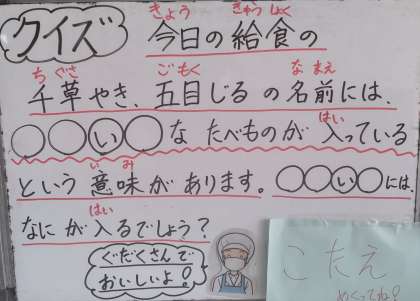 クイズ
今日の給食の
きょう きゅうしょく
千草やき、五目じるの名前には、
ちぐさ ごもく なまえ
○○い○なたべものが入っている
はい
という意味があります。○○い○には
いみ
なにが入るでしょう？
はい
ぐだくさんで
おいしいよ！
こたえ
めくってね！